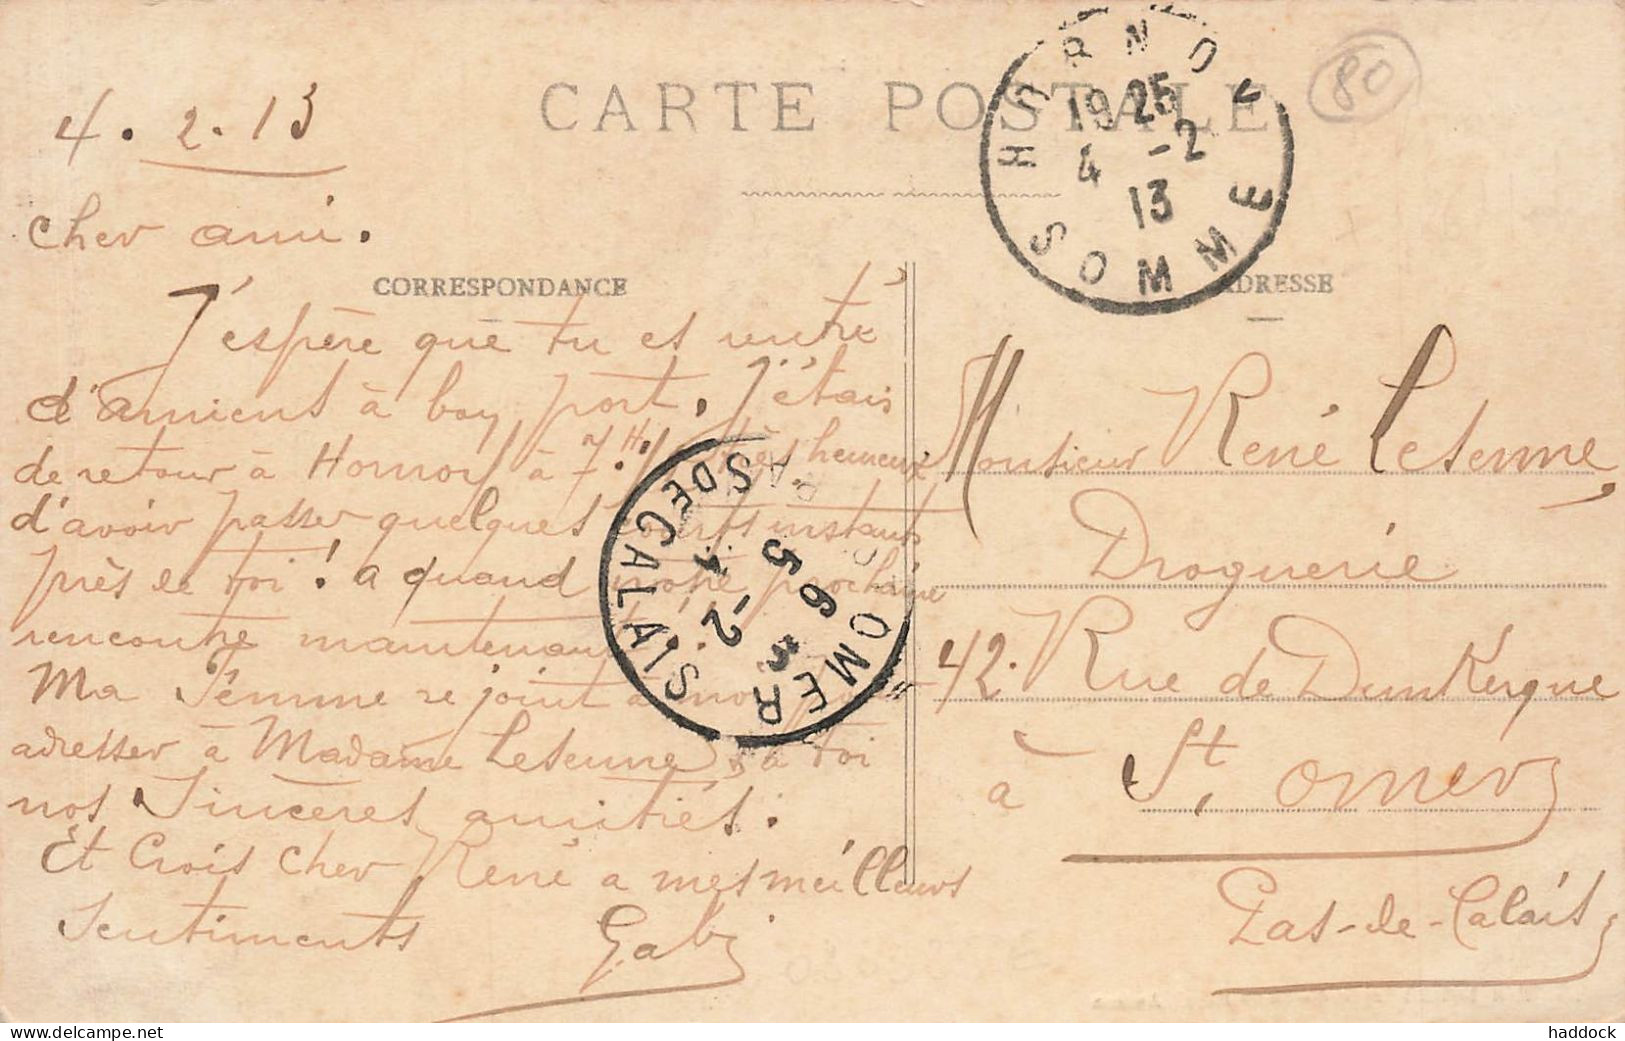 CARTE POSTALE
80
HORNOY
19 25
4 -2
13
SOMME
4.2.13
Cher ami.
CORRESPONDANCE
J'espère que tu es rentré
d'Amiens à bon port. J'étais
de retour à Hornoy à 7.H. très heureux
d'avoir passer quelques courts instants
près de toi! a quand notre prochaine
rencontre maintenant!
Ma Femme se joint à moi
adresser à Madame Lesenne & à toi
nos Sincères amitiés.
Et Crois Cher René a mes meilleurs
Sentiments
Gaby
ST OMER
PAS DE CALAIS
5 6
-2
ADRESSE
Monsieur René Lesenne,
Droguerie
42. Rue de Dunkerque
à St. Omer
Pas-de-Calais
www.delcampe.net
haddock